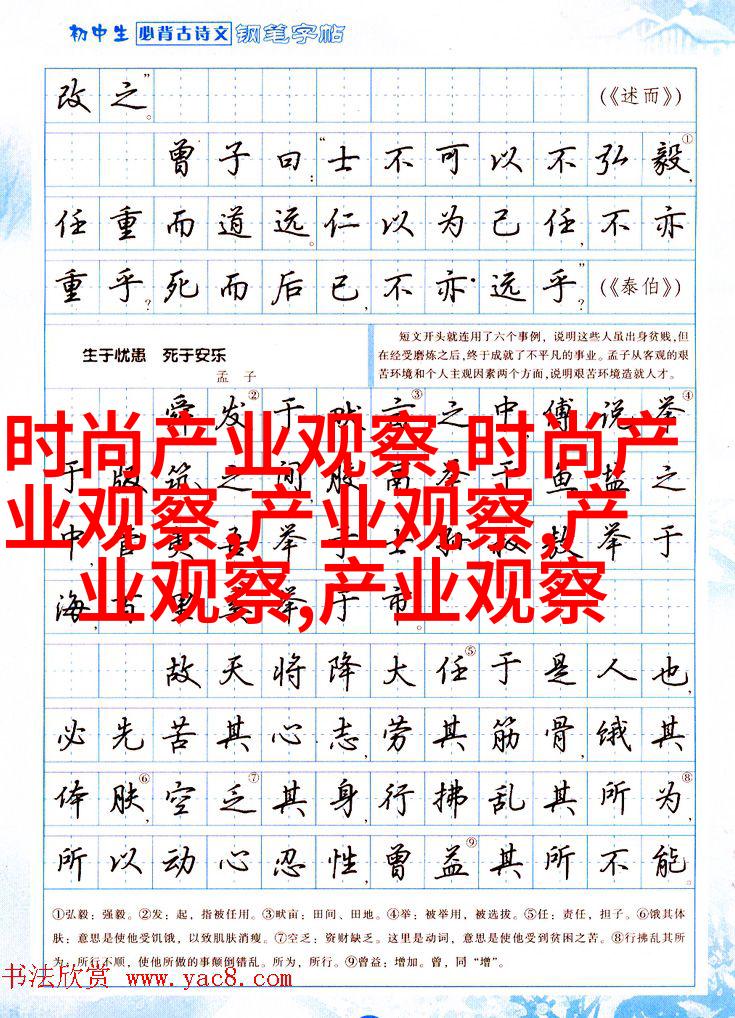 初中生 必背古诗文 钢笔字帖
改之。” (《述而》)
曾子曰:“士不可以不弘毅①,
任重而道远。仁以为己任,不亦
重乎?死而后已,不亦远乎?” (《泰伯》)
生于忧患 死于安乐
孟子
短文开头就连用了六个事例,说明这些人虽出身贫贱,但
在经受磨炼之后,终于成就了不平凡的事业。孟子从客观的艰
苦环境和个人主观因素两个方面,说明艰苦环境造就人才。
舜发②于畎亩③之中,傅说举④
于版筑之间,胶鬲举于鱼盐之
中,管夷吾举于士,孙叔敖举于
海,百里奚举于市。
时尚产业观察,时尚产
业观察,产业观察,产
业观察,产业观察
故天将降大任⑤于是人也,
必先苦其心志,劳其筋骨,饿其
体肤⑥,空乏⑦其身,行拂乱其所为⑧,
所以动心忍性,曾益⑨其所不能。
①弘毅:强毅。②发:起,指被任用。③畎亩:田间、田地。④举:被举用,被选拔。⑤任:责任,担子。⑥饿其体
肤:意思是使他受饥饿,以致肌肤消瘦。⑦空乏:资财缺乏。这里是动词,意思是使他受到贫困之苦。⑧行拂乱其所
为:所行不顺,使他所做的事颠倒错乱。所为,所行。⑨曾益:增加。曾,同“增”。
书法欣赏 www.yac8.com